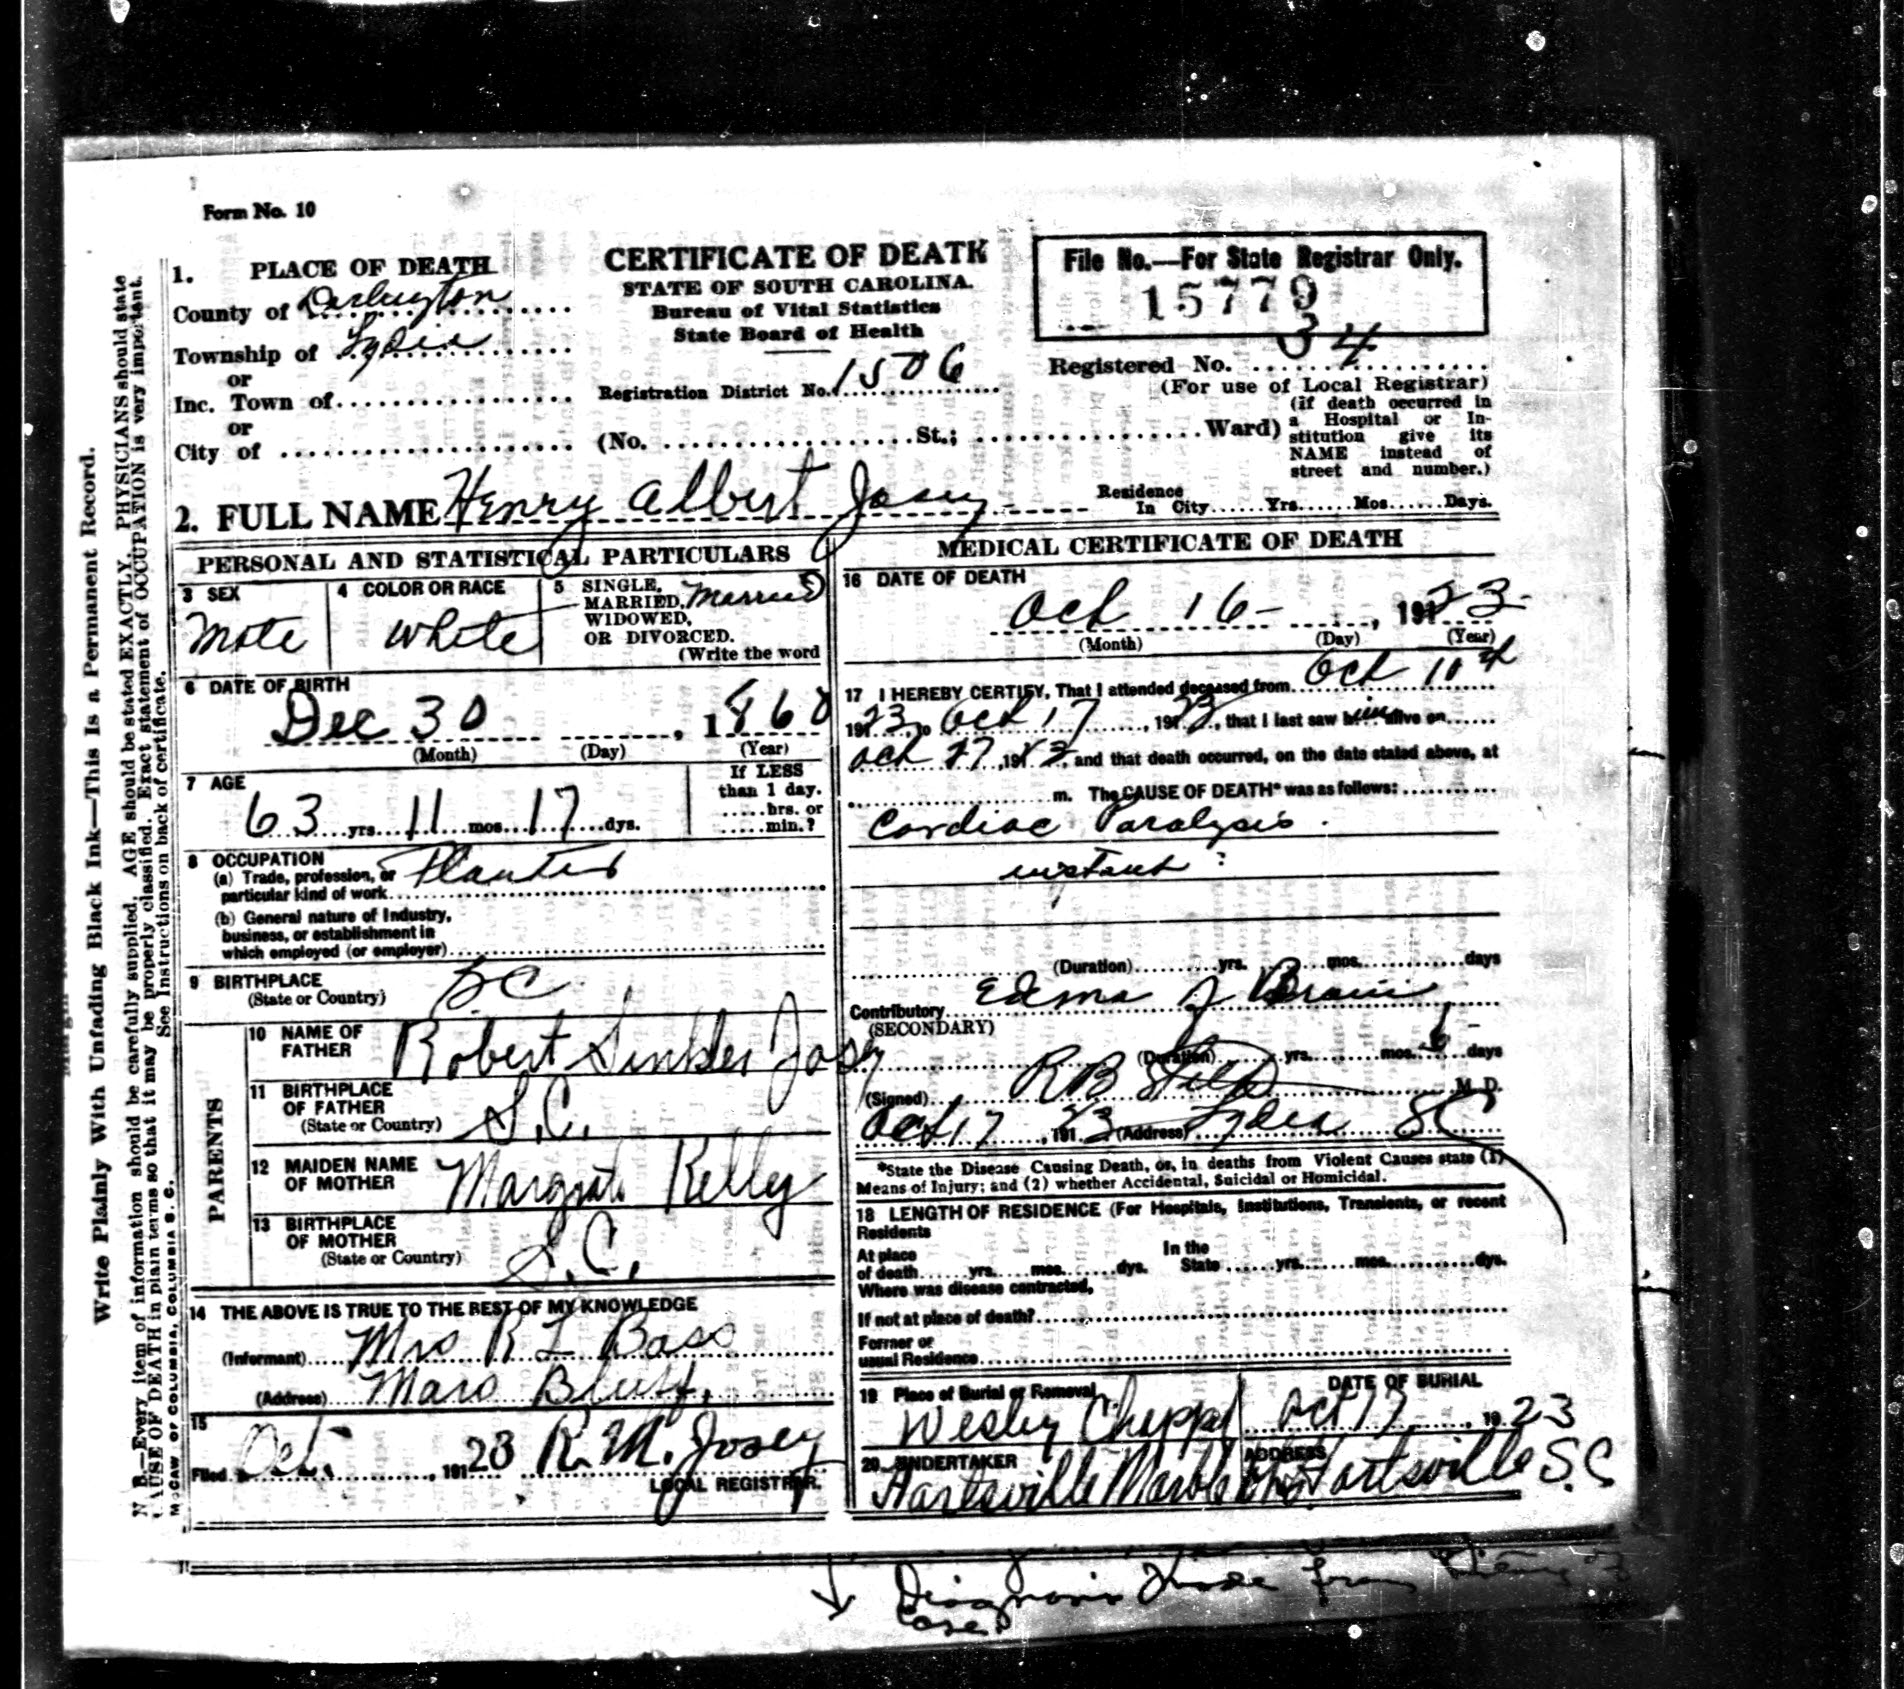 Form No. 10
1. PLACE OF DEATH
County of Darlington
Township of Lydia
or
Inc. Town of
or
City of
CERTIFICATE OF DEATH
STATE OF SOUTH CAROLINA.
Bureau of Vital Statistics
State Board of Health
Registration District No. 1506
(No. St.; Ward)
File No.—For State Registrar Only.
15779
Registered No. 34
(For use of Local Registrar)
(if death occurred in
a Hospital or In-
stitution give its
NAME instead of
street and number.)
2. FULL NAME Henry Albert Josey
Residence
In City......Yrs......Mos......Days.
PERSONAL AND STATISTICAL PARTICULARS
3 SEX
Male
4 COLOR OR RACE
White
5 SINGLE,
MARRIED,
WIDOWED,
OR DIVORCED.
(Write the word
Married
6 DATE OF BIRTH
Dec 30, 1860
(Month) (Day) (Year)
7 AGE
63 yrs. 11 mos. 17 dys.
If LESS
than 1 day.
.....hrs. or
.....min.?
8 OCCUPATION
(a) Trade, profession, or
particular kind of work
Planter
(b) General nature of Industry,
business, or establishment in
which employed (or employer)
9 BIRTHPLACE
(State or Country)
SC
PARENTS
10 NAME OF
FATHER
Robert Sinkler Josey
11 BIRTHPLACE
OF FATHER
(State or Country)
S.C.
12 MAIDEN NAME
OF MOTHER
Kelley
13 BIRTHPLACE
OF MOTHER
(State or Country)
S.C.
14 THE ABOVE IS TRUE TO THE BEST OF MY KNOWLEDGE
(Informant) Mrs R L Bass
(Address) Mars Bluff.
15
Filed Oct. , 1923 R. M. Josey
LOCAL REGISTRAR.
MEDICAL CERTIFICATE OF DEATH
16 DATE OF DEATH
Oct 16 - , 1923
(Month) (Day) (Year)
17 I HEREBY CERTIFY, That I attended deceased from Oct
1923, to Oct 17, 1923, that I last saw him alive on
Oct , 1923, and that death occurred, on the date stated above, at
m. The CAUSE OF DEATH* was as follows:
Cardiac Paralysis.
instant
(Duration) yrs. mos. days
Contributory Edema of Brain
(SECONDARY)
(Duration) yrs. mos. 6 days
(Signed) R B M. D.
Oct 17, 1923 (Address) Lydia SC
*State the Disease Causing Death, or, in deaths from Violent Causes state (1)
Means of Injury; and (2) whether Accidental, Suicidal or Homicidal.
18 LENGTH OF RESIDENCE (For Hospitals, Institutions, Transients, or recent
Residents
At place
of death......yrs......mos......dys.
In the
State......yrs......mos......dys.
Where was disease contracted,
If not at place of death?
Former or
usual Residence
19 Place of Burial or Removal
Wesley Chappl
DATE OF BURIAL
Oct 17, 1923
20 UNDERTAKER
Hartsville
ADDRESS
Hartsville S.C
Diagnosis from
Case
Write Plainly With Unfading Black Ink—This Is a Permanent Record.
N. B.—Every item of information should be carefully supplied. AGE should be stated EXACTLY. PHYSICIANS should state
CAUSE OF DEATH in plain terms so that it may be properly classified. Exact statement of OCCUPATION is very important.
See Instructions on back of certificate.
McCAW OF COLUMBIA, COLUMBIA S. C.